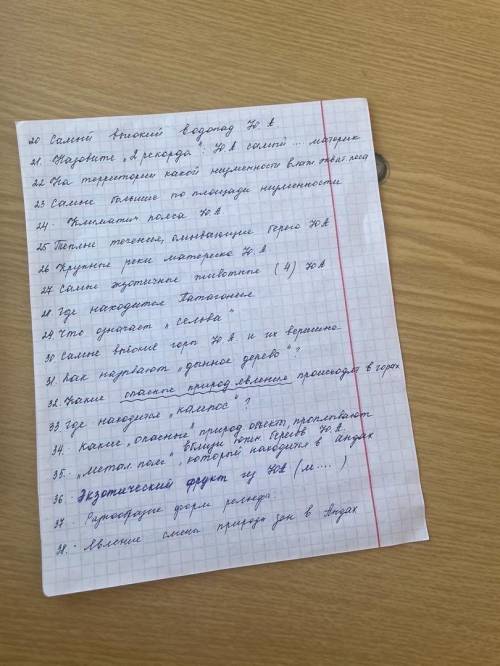 20 Самый высокий водопад Ю.А
21. Назовите „2 рекорда": Ю.А самый ... материк
22 На территории какой низменности влаж экват леса
23 Самые большие по площади низменности
24. Климатич пояса Ю А
25 Теплые течения, омывающие берега Ю А
26 Крупные реки материка Ю.А
27 Самые экзотичные животные (4) Ю А
28 Где находится Патагония
29. Что означает „сельва"
30 Самые высокие горы Ю А и их вершина
31. Как называют „дынное дерево"?
32. Какие опасные природ явления происходят в горах
33. Где находится „кампос"?
34. Какие „опасные" природ объекты, проплывают вблизи южн. берегов Ю.А.
35. „Метал. пояс", который находится в Андах
36 Экзотический фрукт из Ю А (м....)
37 Разнообразие форм рельефа
38. Явление смены природн зон в Андах